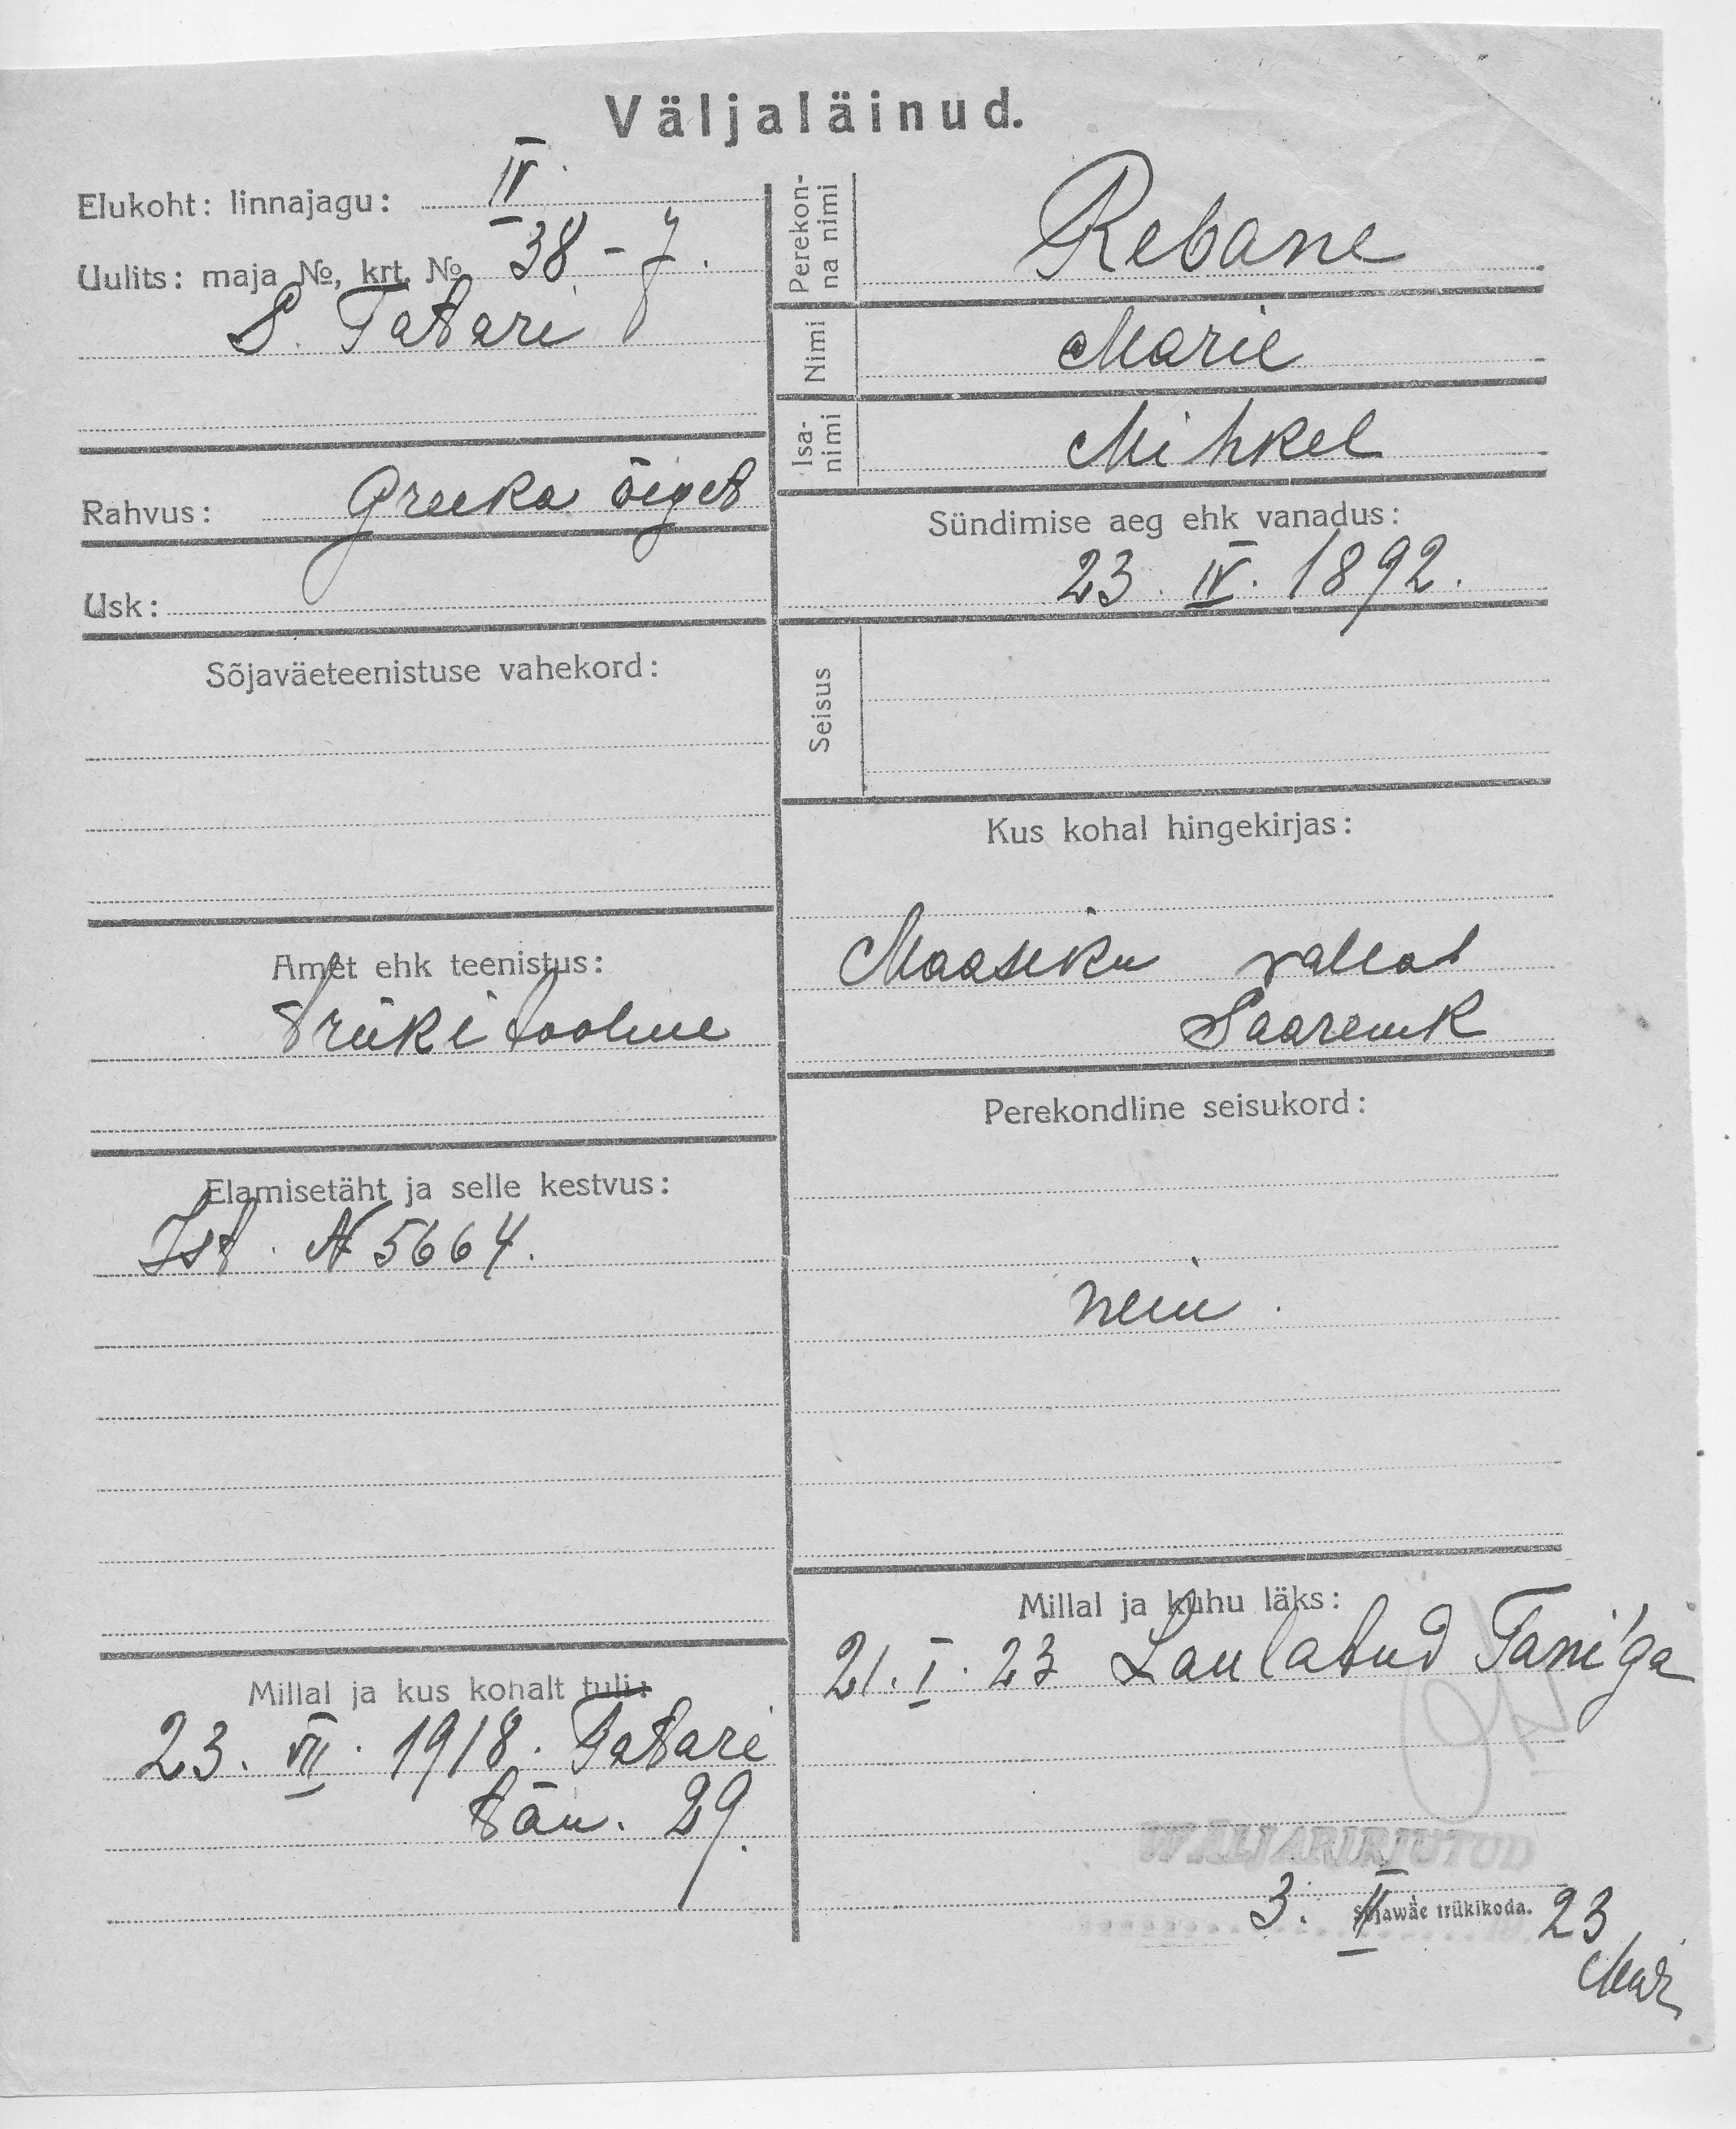 Väljaläinud.
Elukoht: linnajagu: IV
Uulits: maja №, krt. № 38 - 7.
S. Tatari
Rahvus: Greeka õiget
Usk:
Sõjaväeteenistuse vahekord:
Amet ehk teenistus:
trükitooline
Elamisetäht ja selle kestvus:
Ist. N 5664.
Millal ja kus kohalt tuli:
23. VII. 1918. Tatari
tän. 29.
Perekonna nimi Rebane
Nimi Marie
Isanimi Mihkel
Sündimise aeg ehk vanadus:
23. IV. 1892.
Seisus
Kus kohal hingekirjas:
Maasiku vallas
Saaremk
Perekondline seisukord:
neiu.
Millal ja kuhu läks:
21. I. 23 Laulatud Tani'ga
WÄLJAKIRJUTUD
3. II 23
Sõjawäe trükikoda.